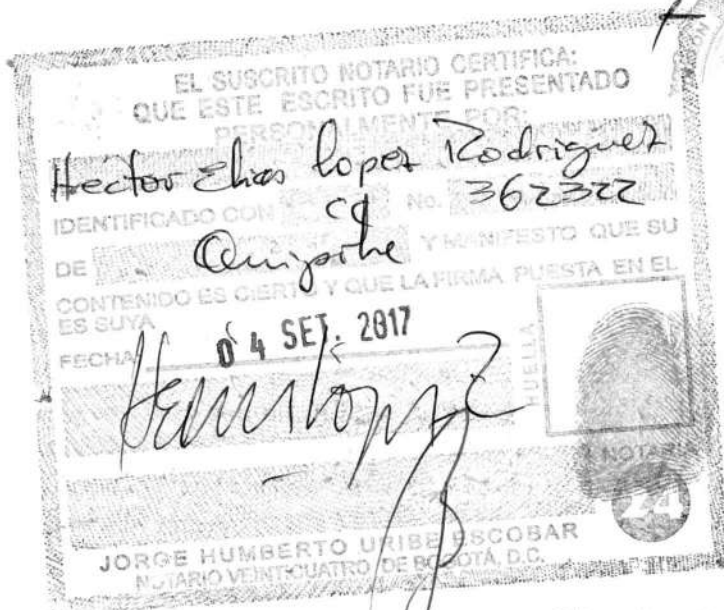 EL SUSCRITO NOTARIO CERTIFICA:
QUE ESTE ESCRITO FUE PRESENTADO
PERSONALMENTE POR:
Hector Elias Lopez Rodriguez
IDENTIFICADO CON cc No. 362322
DE Quipile Y MANIFESTO QUE SU
CONTENIDO ES CIERTO Y QUE LA FIRMA PUESTA EN EL
ES SUYA
FECHA 04 SET. 2017
HUELLA
NOTARIA
24
JORGE HUMBERTO URIBE ESCOBAR
NOTARIO VEINTICUATRO DE BOGOTÁ, D.C.